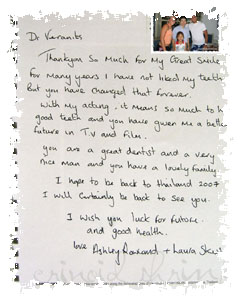 Dr
Thankyou So Much for My Great Smile
for Many years I have not liked my teeth
But you have changed that forever.
With My acting, it means so much to h
good teeth and you have given me a better
future in T.V and Film.
you are a great dentist and a very
nice man and you have a lovely family
I hope to be back to thailand 2007
I will Certainly be back to see you.
I wish you luck for future.
and good health.
love Ashley + Laura